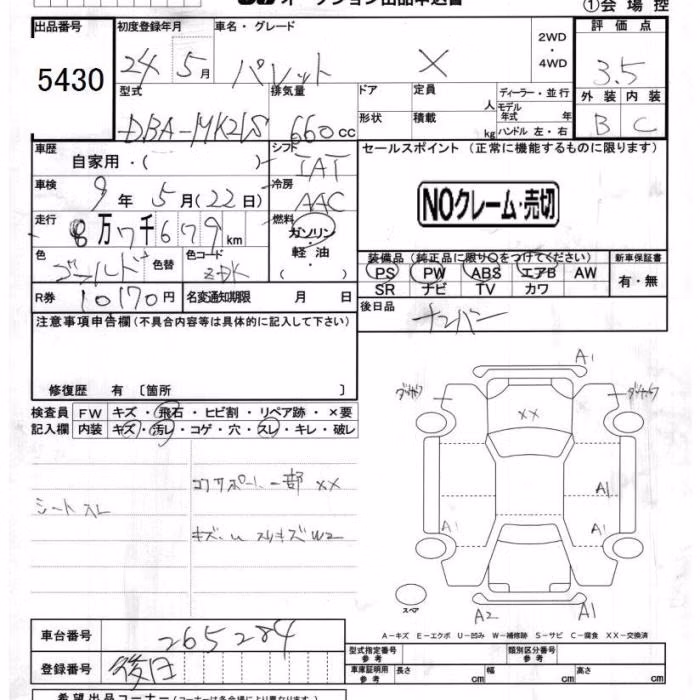 オークション出品申込書
①会場控
出品番号 初度登録年月 車名・グレード 2WD・4WD 評価点
5430 24 5月 パレット X 3.5
型式 排気量 ドア 定員 人 ディーラー・並行 外装 内装
DBA-MK21S 660cc 形状 積載 kg モデル年式 年 ハンドル 左・右 B C
車歴 自家用・( ) シフト IAT セールスポイント (正常に機能するものに限ります)
車検 9年5月(22日) 冷房 AAC
NOクレーム・売切
走行 8万7千679km 燃料 ガソリン・軽油・( )
色 ゴールド 色替 色コード
装備品 (純正品に限り○をつけてください) 新車保証書
PS PW ABS エアB AW 有・無
SR ナビ TV カワ
R券 10170円 名変通知期限 月 日
後日品 ナンバー
注意事項申告欄 (不具合内容等は具体的に記入して下さい)
修復歴 有 [箇所 ]
検査員 FW キズ・飛石・ヒビ割・リペア跡・×要
記入欄 内装 キズ・汚レ・コゲ・穴・スレ・キレ・破レ
コアサポート一部 XX
シートスレ
キズ・U スリキズ W2
A1
XX
A1
A1 A1
スペア
A2 A1
A-キズ E-エクボ U-凹み W-補修跡 S-サビ C-腐食 XX-交換済
車台番号 265284
型式指定番号 参考 類別区分番号 参考
登録番号 後日
車庫証明用 参考 長さ cm 幅 cm 高さ cm
希望出品コーナー(コーナーは各会場により異なります)